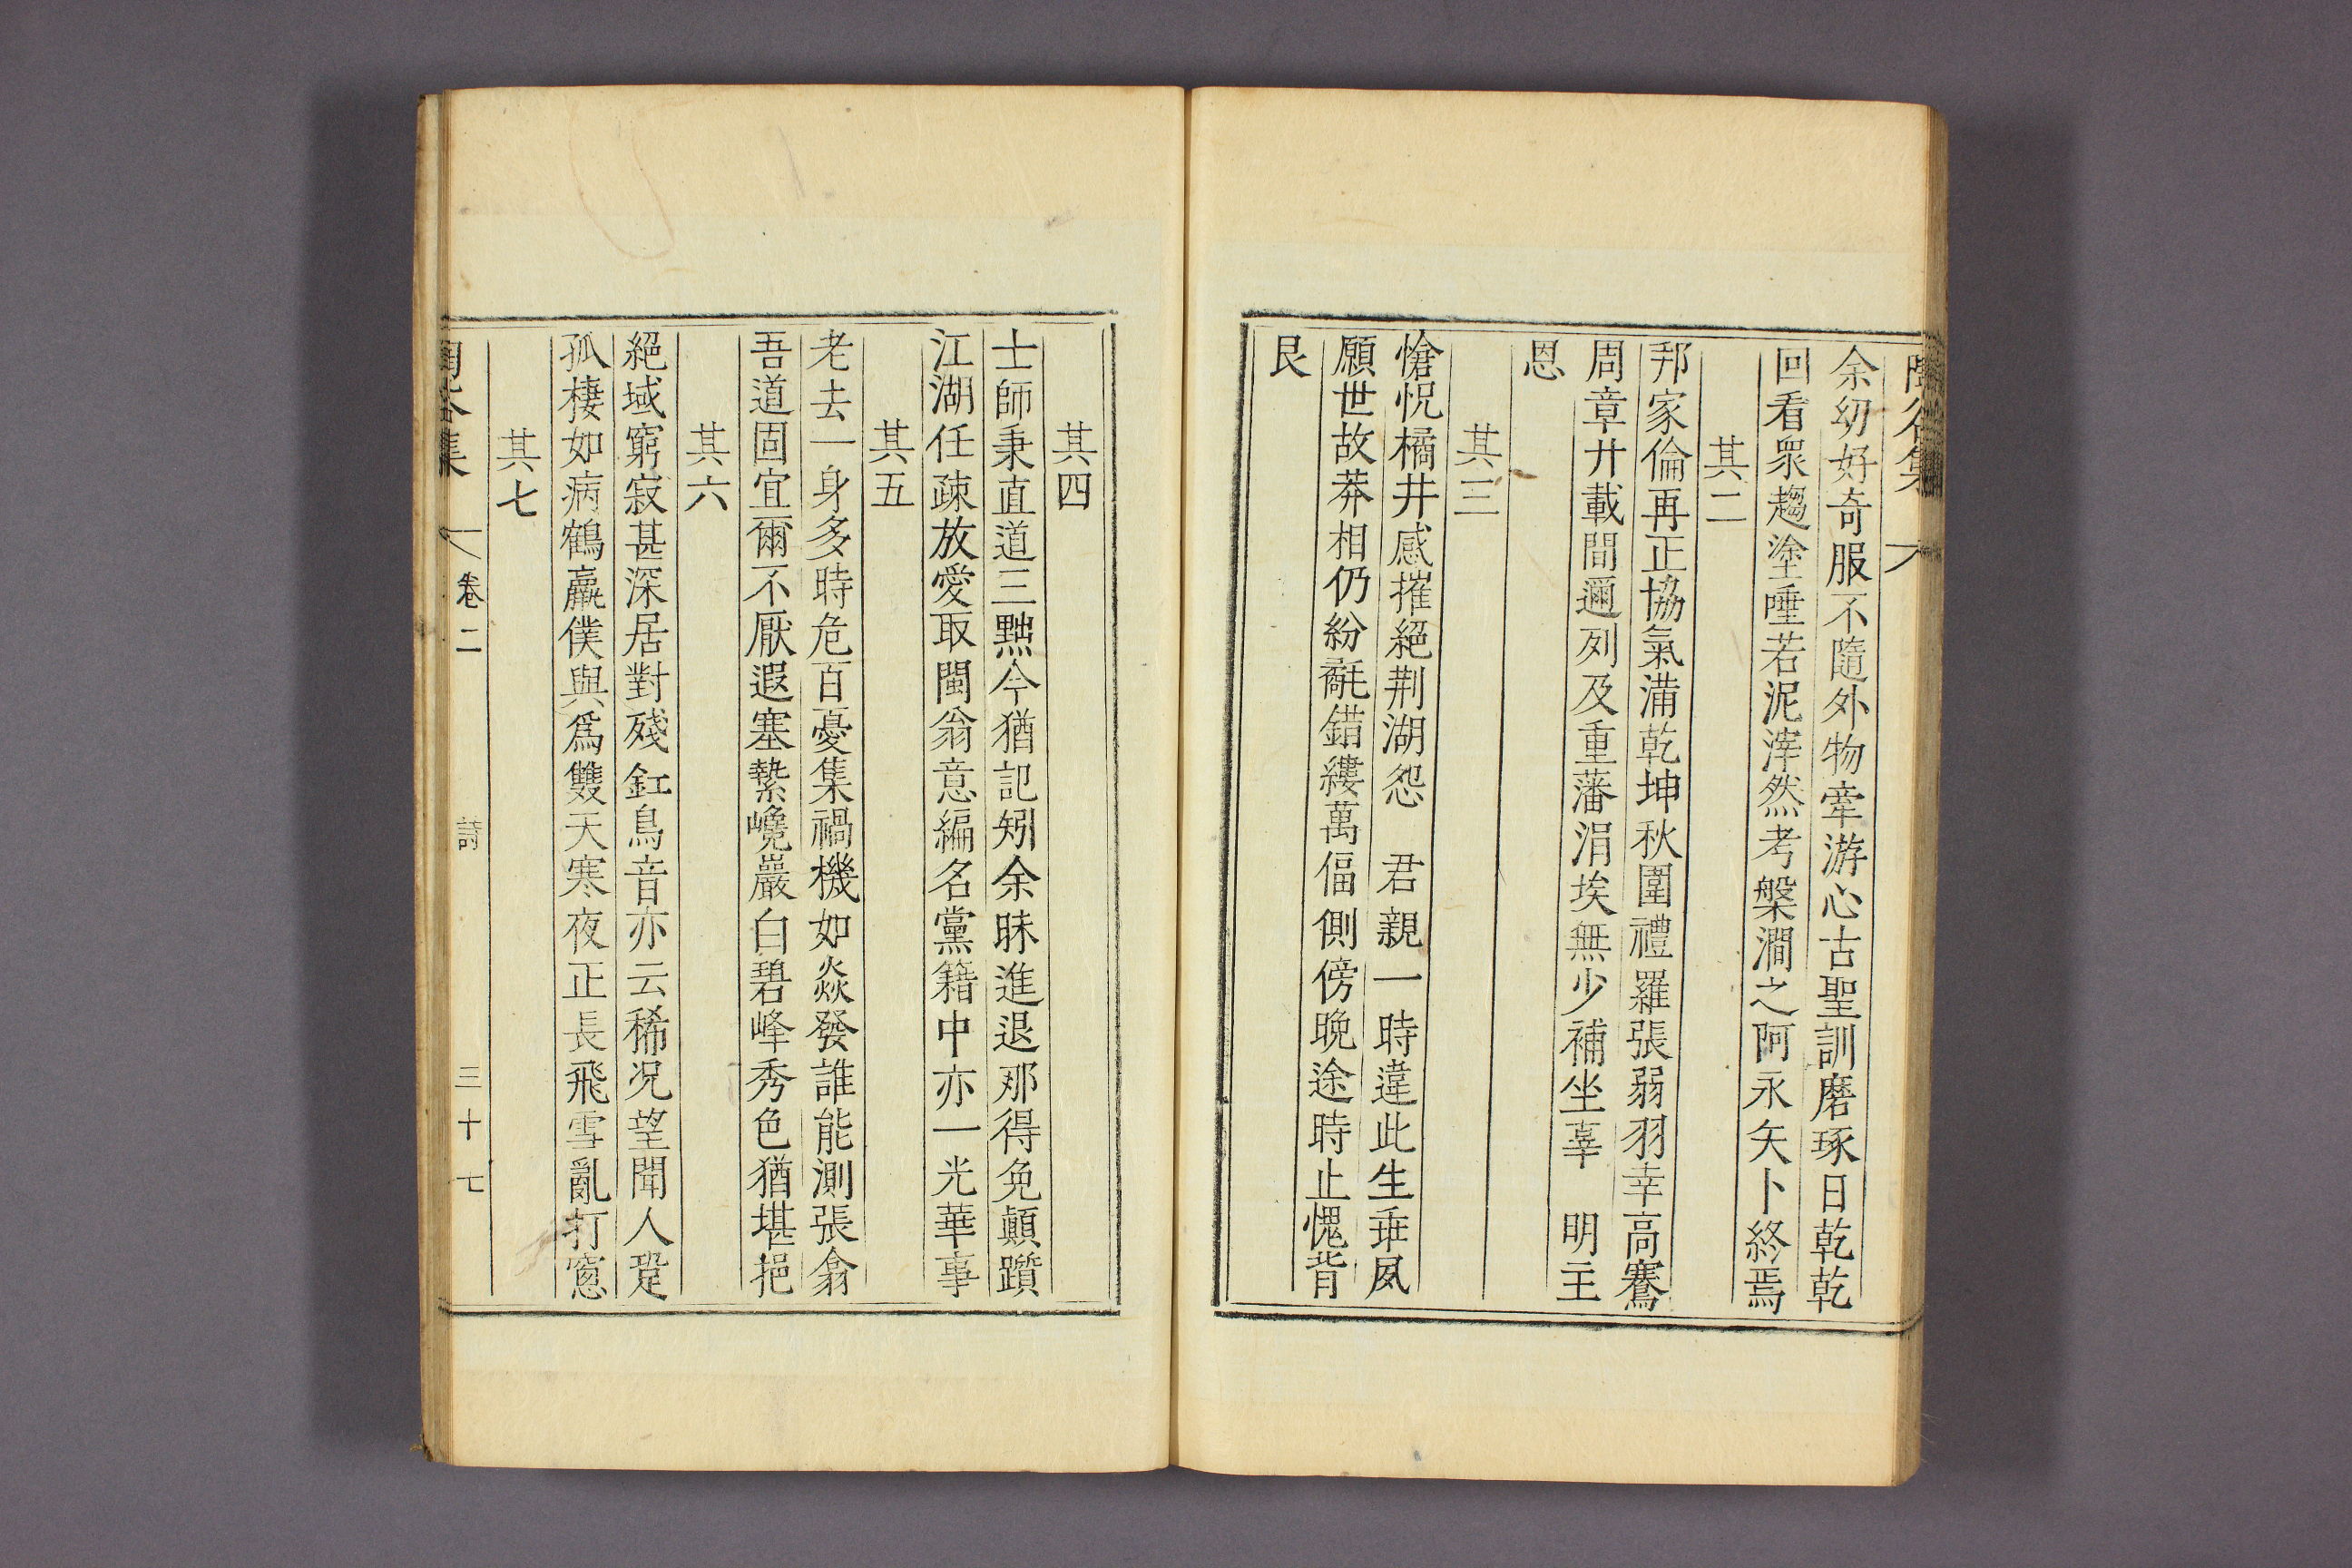 余幼好奇服不隨外物牽游心古聖訓磨琢日乾乾
回看衆趨塗唾若泥滓然考槃澗之阿永矢卜終焉
其二
邦家倫再正協氣滿乾坤秋圍禮羅張弱羽幸高騫
周章廾載間邇列及重藩涓埃無少補坐辜 明主
恩
其三
愴怳橘井感摧絕荆湖怨 君親一時違此生乖夙
願世故莽相仍紛氄錯縷萬偪側傍晩途時止愧背
艮
其四
士師秉直道三黜今猶記矧余昧進退那得免顚躓
江湖任疎放愛取閩翁意編名黨籍中亦一光華事
其五
老去一身多時危百憂集禍機如焱發誰能測張翕
吾道固宜爾不厭遐塞縶巉巖白碧峰秀色猶堪挹
其六
絕域窮寂甚深居對殘釭鳥音亦云稀况望聞人跫
孤棲如病鶴羸僕與爲雙天寒夜正長飛雪亂打窓
其七
卷二 詩 三十七